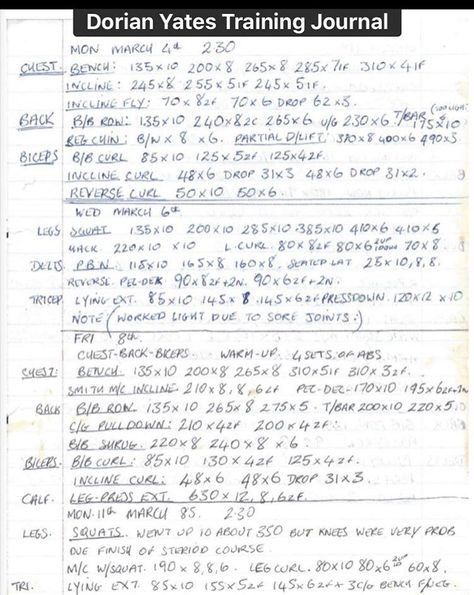 Dorian Yates Training Journal
MON MARCH 4th 2.30
CHEST. BENCH: 135x10 200x8 265x8 285x71F 310x41F
INCLINE: 245x8 255x51F 245x51F.
INCLINE FLY: 70x82F 70x6 DROP 62x3.
BACK B/B ROW: 135x10 240x82C 265x6 U/G 230x6 T/BAR (TOO LIGHT) 175x10
REG CHIN: B/W x 8 x6. PARTIAL D/LIFT: 370x8 400x6 490x3.
BICEPS B/B CURL 85x10 125x52F 125x42F.
INCLINE CURL 48x6 DROP 31x3 48x6 DROP 31x2.
REVERSE CURL 50x10 50x6.
WED MARCH 6th
LEGS SQUAT 135x10 200x10 285x10 385x10 410x6 410x6
HACK. 220x10 x10 L.CURL. 80x82F 80x6 2UP 1DOWN 70x8.
DELTS. P.B.N: 115x10 165x8 160x8. SEATED LAT 25x10,8,8.
REVERSE. PEC-DEK 90x82F+2N. 90x62F+2N.
TRICEP. LYING EXT. 85x10 145x8 145x62F PRESSDOWN. 120x12 x10
NOTE (WORKED LIGHT DUE TO SORE JOINTS:)
FRI 8th.
CHEST-BACK-BICEPS WARM-UP. 4 SETS OF ABS
CHEST: BENCH 135x10 200x8 265x8 310x51F 310x32F.
SMITH M/C INCLINE 210x8,8,62F PEC-DEC-170x10 195x62F+2N
BACK B/B ROW. 135x10 265x8 275x5. T/BAR 200x10 220x5.
C/G PULLDOWN: 210x42F 200x42F
B/B SHRUG. 220x8 240x8 x6.
BICEPS. B/B CURL: 85x10 130x42F 125x42F.
INCLINE CURL: 48x6 48x6 DROP 31x3.
CALF. LEG-PRESS EXT. 630x12,8,62F.
MON. 11th MARCH 85. 2.30
LEGS. SQUATS. WENT UP TO ABOUT 350 BUT KNEES WERE VERY PROB
DUE FINISH OF STERIOD COURSE.
M/C W/SQUAT. 190x8,8,6. LEG CURL. 80x10 80x6 2UP 60x8.
TRI. LYING EXT. 85x10 155x52F 145x62F+3 C/G BENCH